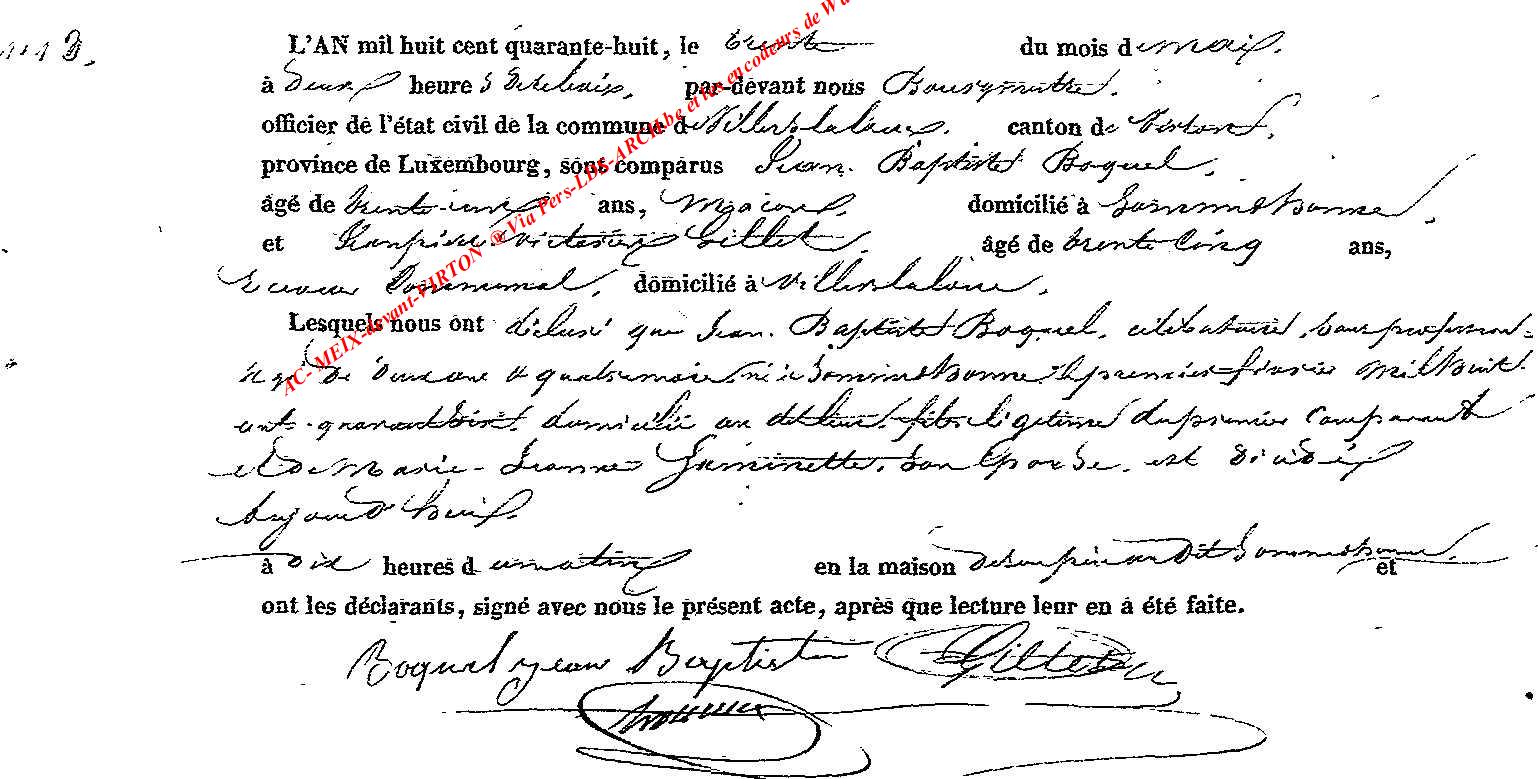 N° 13.
L'AN mil huit cent quarante-huit, le trente du mois de mai.
à deux heures de relevée, par-devant nous Bourgmestre.
officier de l'état civil de la commune de Villers la loue. canton de Virton,
province de Luxembourg, sont comparus Jean. Baptiste Boquel.
âgé de trente ans, Maçon. domicilié à Sommethonne,
et Jean pierre Victorien Gillet, âgé de trente cinq ans,
receveur Communal, domicilié à Villers la loue,
Lesquels nous ont déclaré que Jean. Baptiste Boquel, célibataire, sans profession
agé de deux ans et quatre mois, né à Sommethonne le premier février mil huit
cent quarante six, domicilié au dit lieu, fils légitime du premier Comparant
et de Marie-Jeanne son épouse, est décédé
aujourd'hui
à dix heures du matin en la maison de son père au dit Sommethonne, et
ont les déclarants, signé avec nous le présent acte, après que lecture leur en à été faite.
Boquel jean Baptiste Gillet
AC- MEIX-devant-VIRTON ® Via Pers-LDS-ARCH.be et les encodeurs de